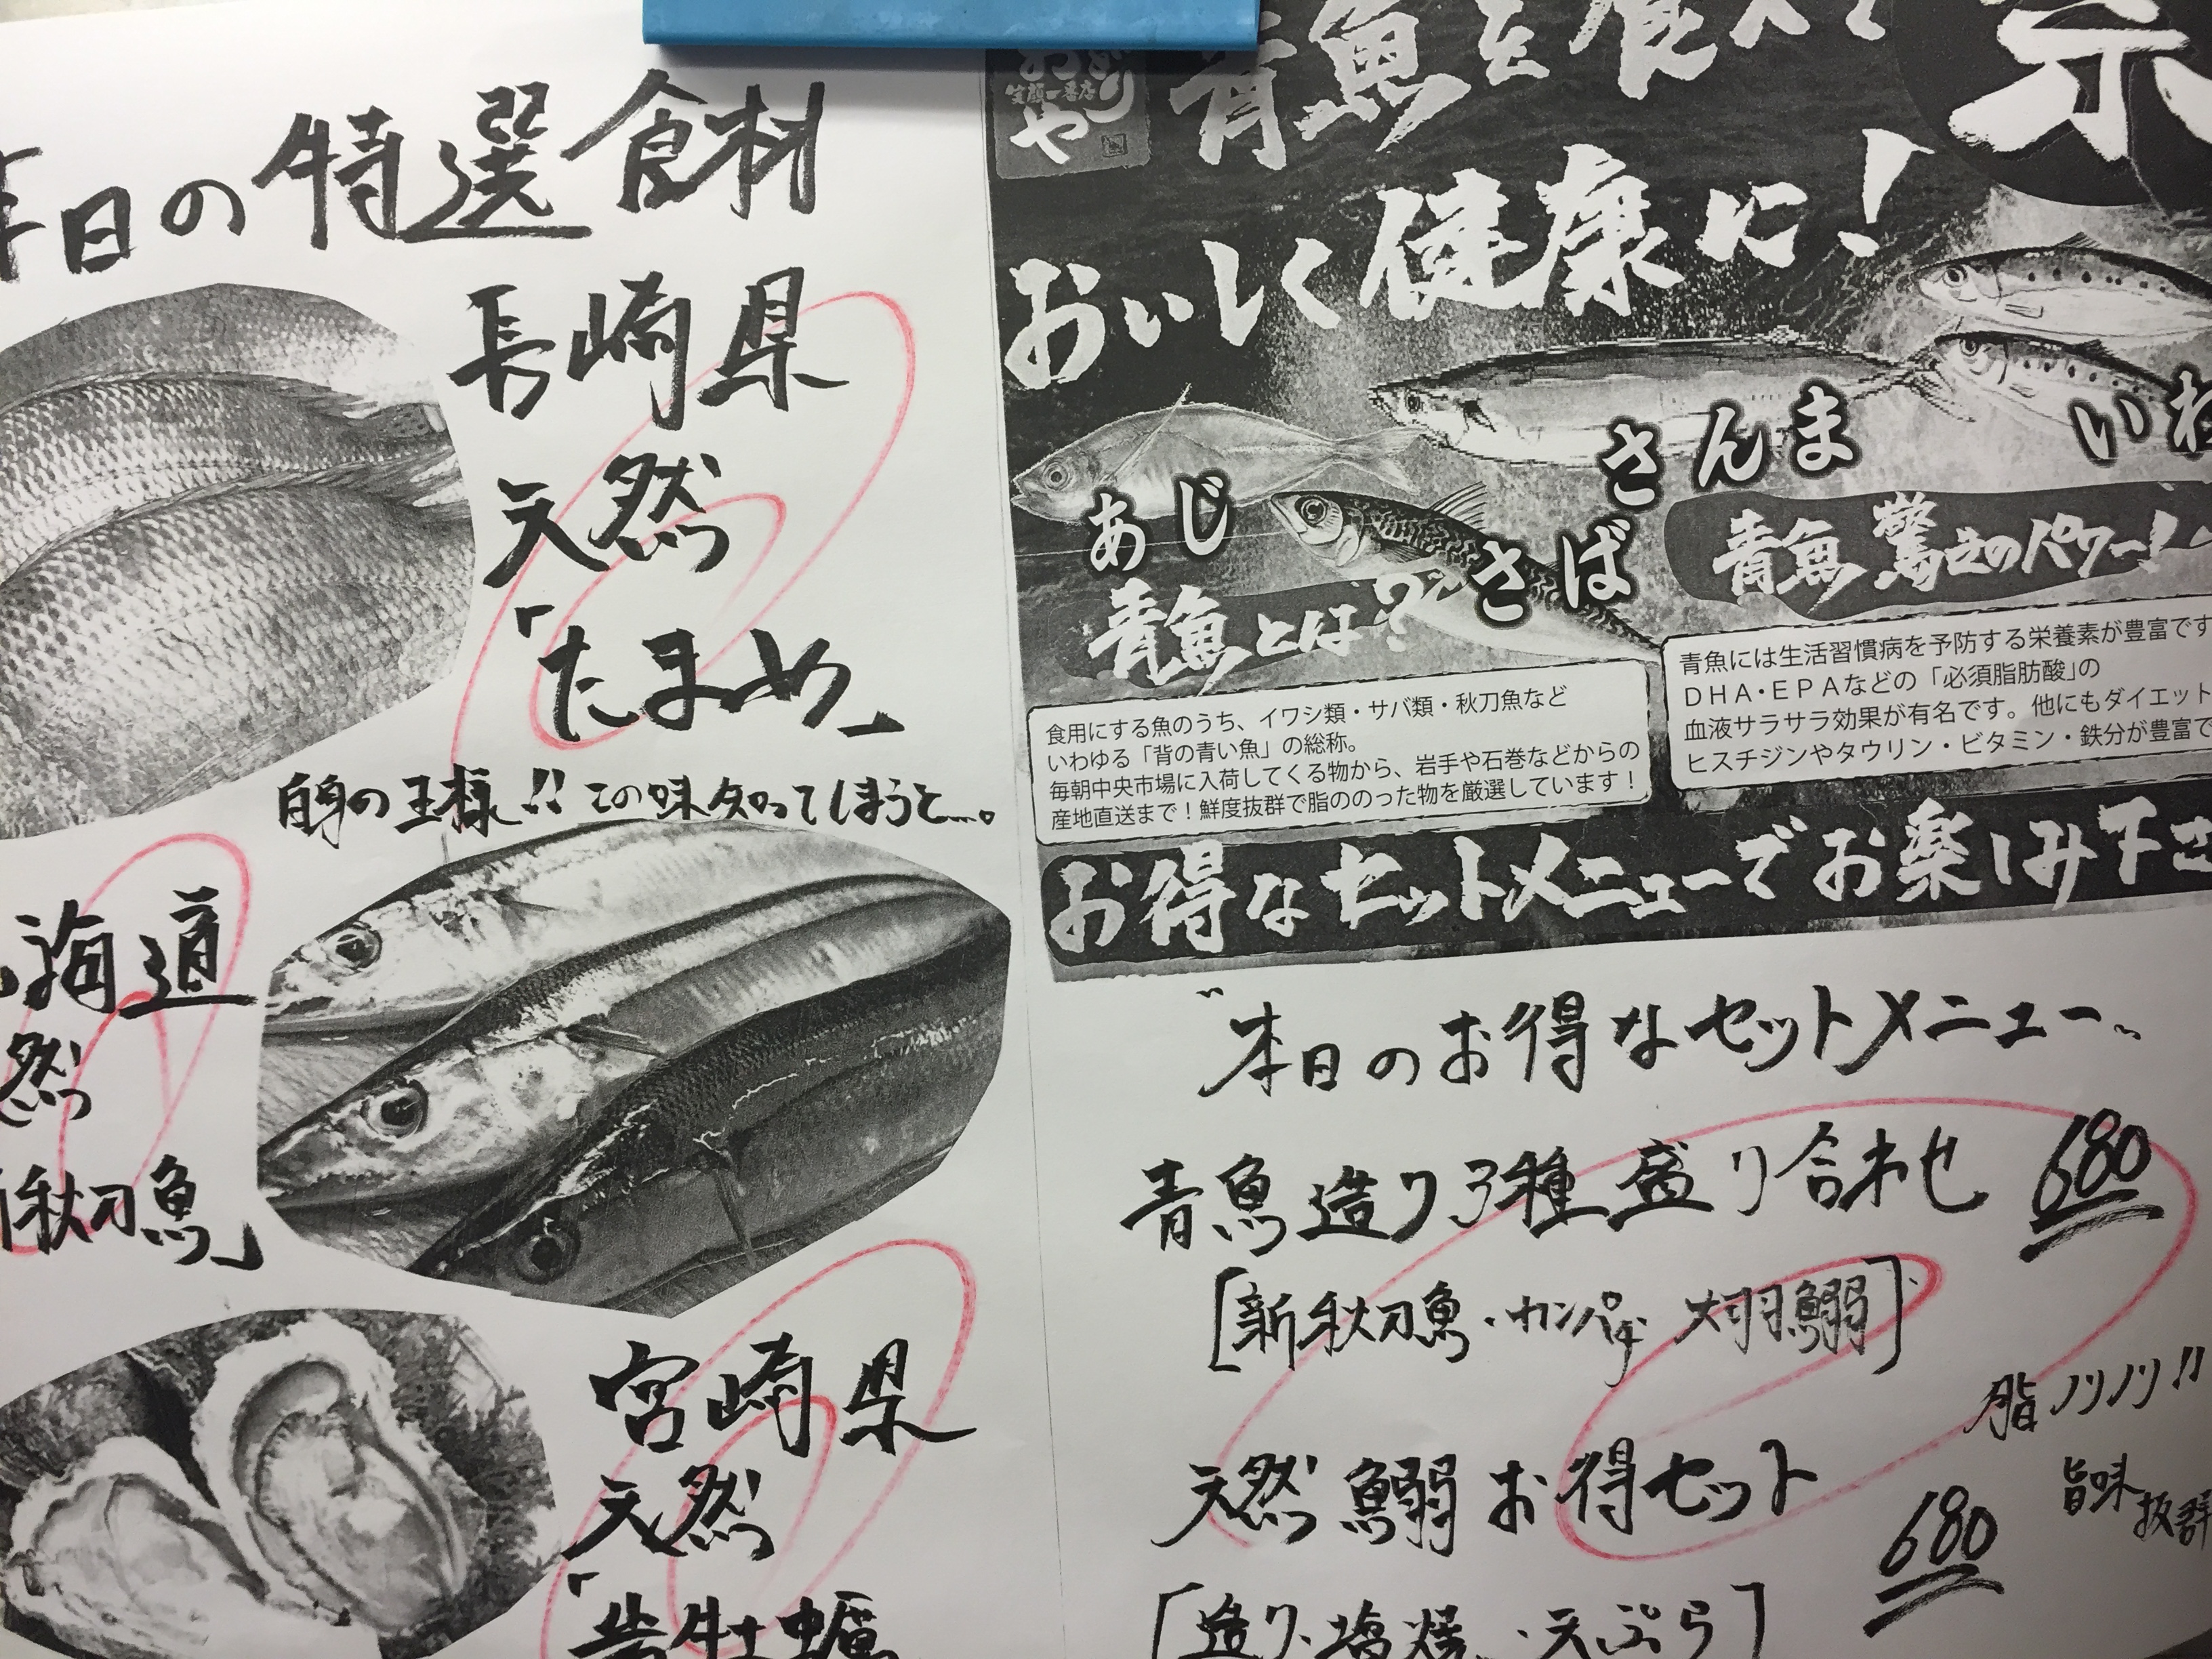 本日の特選食材
長崎県
天然
「たまめ」
白身の王様!!この味知ってしまうと…。
海道
然
秋刀魚」
宮崎県
天然
「岩牡蠣
や
生蔵一番店
青魚を食べて
祭
おいしく健康に!
あじ
さんま
さば
いわ
青魚とは?
食用にする魚のうち、イワシ類・サバ類・秋刀魚など
いわゆる「背の青い魚」の総称。
毎朝中央市場に入荷してくる物から、岩手や石巻などからの
産地直送まで!鮮度抜群で脂ののった物を厳選しています!
青魚驚きのパワー!
青魚には生活習慣病を予防する栄養素が豊富です
DHA・EPAなどの「必須脂肪酸」の
血液サラサラ効果が有名です。他にもダイエット
ヒスチジンやタウリン・ビタミン・鉄分が豊富で
お得なセットメニューでお楽しみ下さ
"本日のお得なセットメニュー"
青魚造り3種盛り合わせ 680
[新秋刀魚・カンパチ 大羽鰯]
脂ノリノリ!!
旨味抜群
天然鰯お得セット 680
[造り、塩焼、天ぷら]